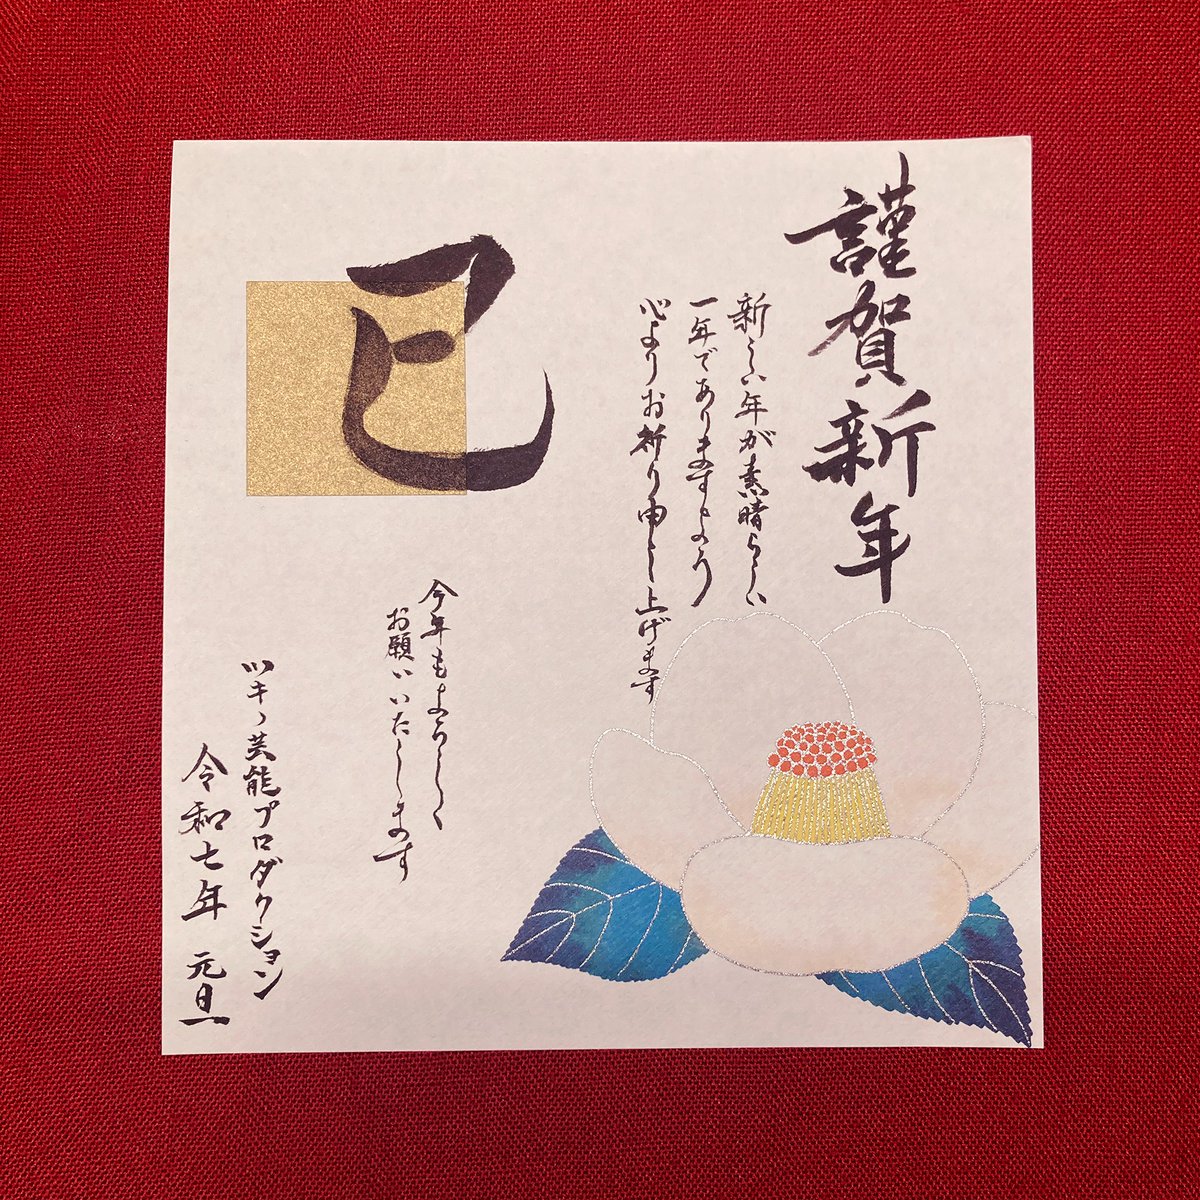 謹賀新年
新しい年が素晴らしい
一年でありますよう
心よりお祈り申し上げます
巳
今年もよろしく
お願いいたします
ツキノ芸能プロダクション
令和七年 元旦